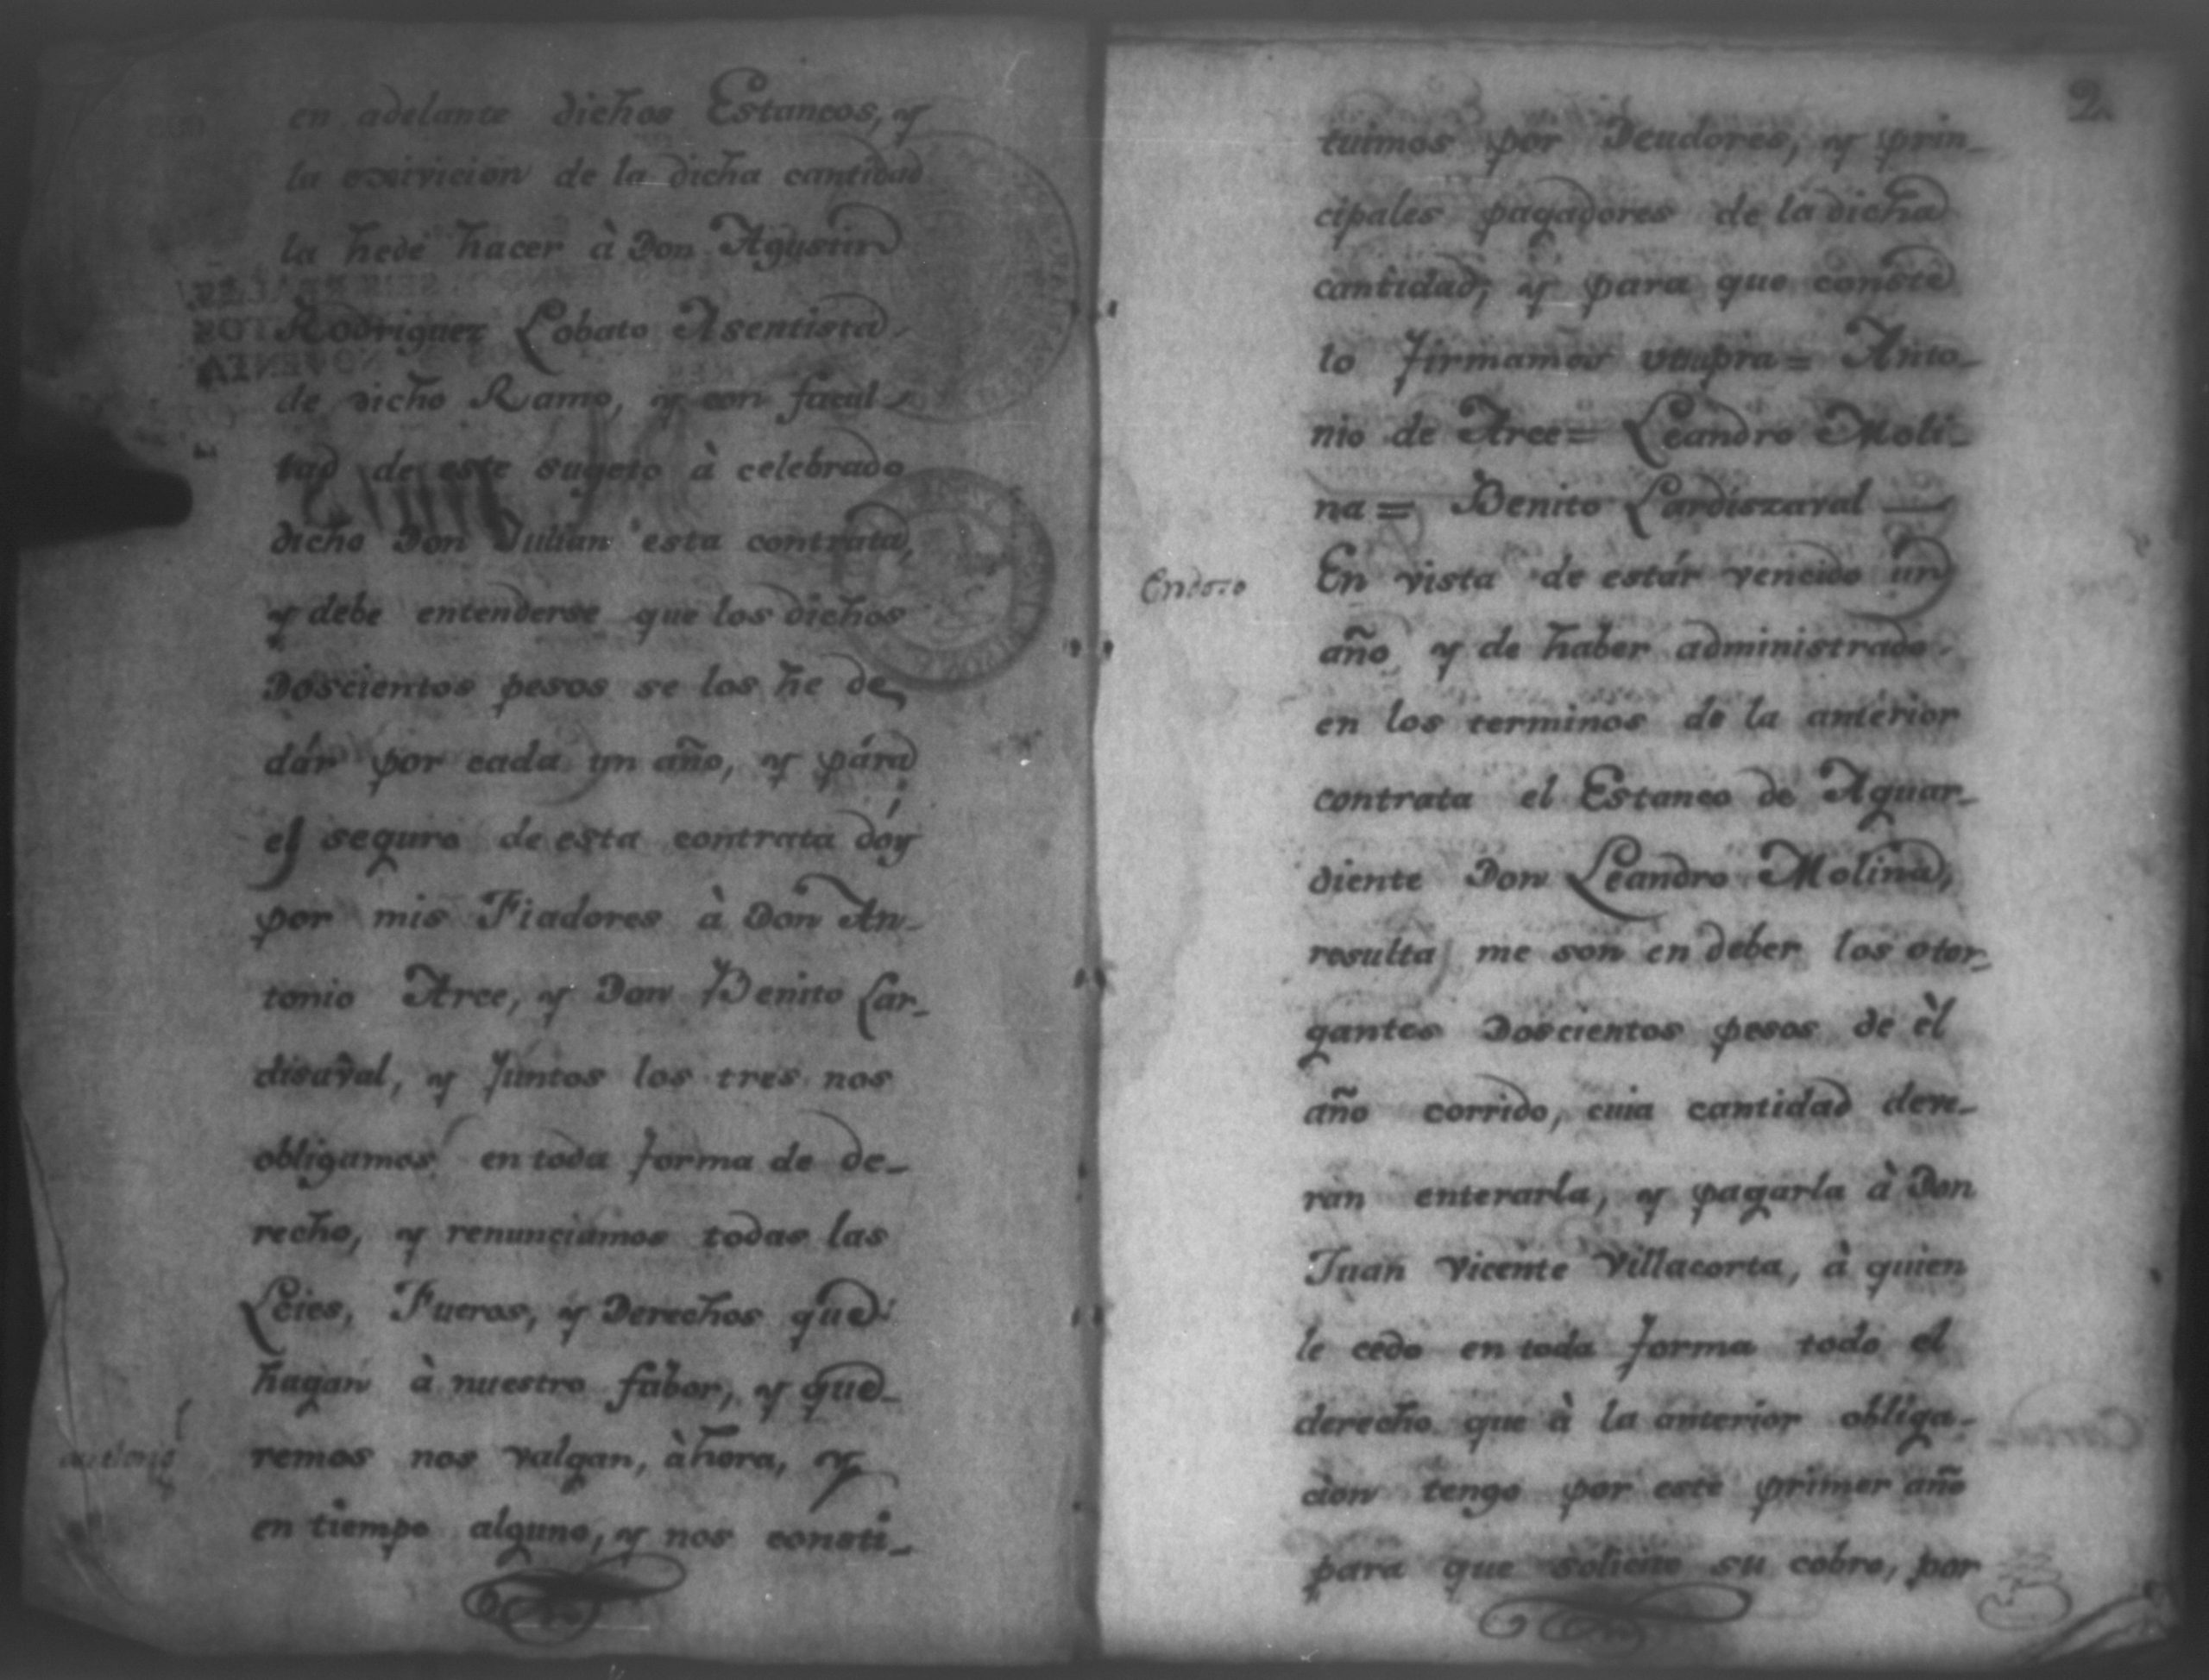 en adelante dichos Estancos, y
la exivicion de la dicha cantidad
la hede hacer à Don Agustin
Rodriguez Lobato Asentista
de dicho Ramo, y con facul
tad de este sugeto à celebrado
dicho Don Julian esta contrata,
y debe entenderse que los dichos
Doscientos pesos se los he de
dár por cada un año, y pára
el seguro de esta contrata dóy
por mis Fiadores à Don An-
tonio Arce, y Don Benito Lar-
disaval, y Juntos los tres nos
obligamos en toda forma de de-
recho, y renunciamos todas las
Leies, Fueros, y Derechos que
hagan à nuestro fabor, y que-
remos nos valgan, àhora, y
en tiempo alguno, y nos consti-
2
tuimos por Deudores, y prin-
cipales pagadores de la dicha
cantidad; y para que conste
lo firmamos utsupra = Anto-
nio de Arce = Leandro Moli-
na = Benito Lardiszaval
Endoso
En vista de estár vencido un
año, y de haber administrado
en los terminos de la anterior
contrata el Estanco de Aguar-
diente Don Leandro Molina,
resulta me son en deber los otor-
gantes Doscientos pesos de èl
año corrido, cuia cantidad deve-
ran enterarla, y pagarla à Don
Juan Vicente Villacorta, à quien
le cedo en toda forma todo el
derecho que à la anterior obliga-
cion tengo por este primer año
para que solicite su cobro, por